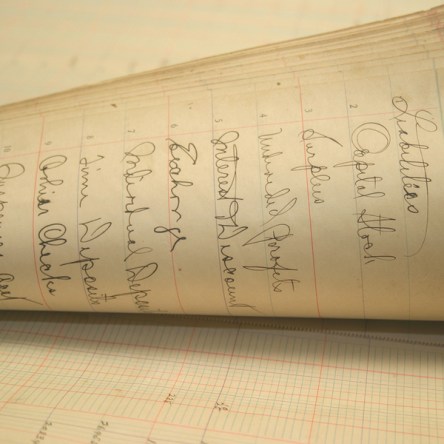 Liabilities
2 Capital Stock
3 Surplus
4 Undivided Profits
5 Interest & Discount
6 Exchange
7 Individual Depos
8 Time Deposits
9 Cashier Checks
10